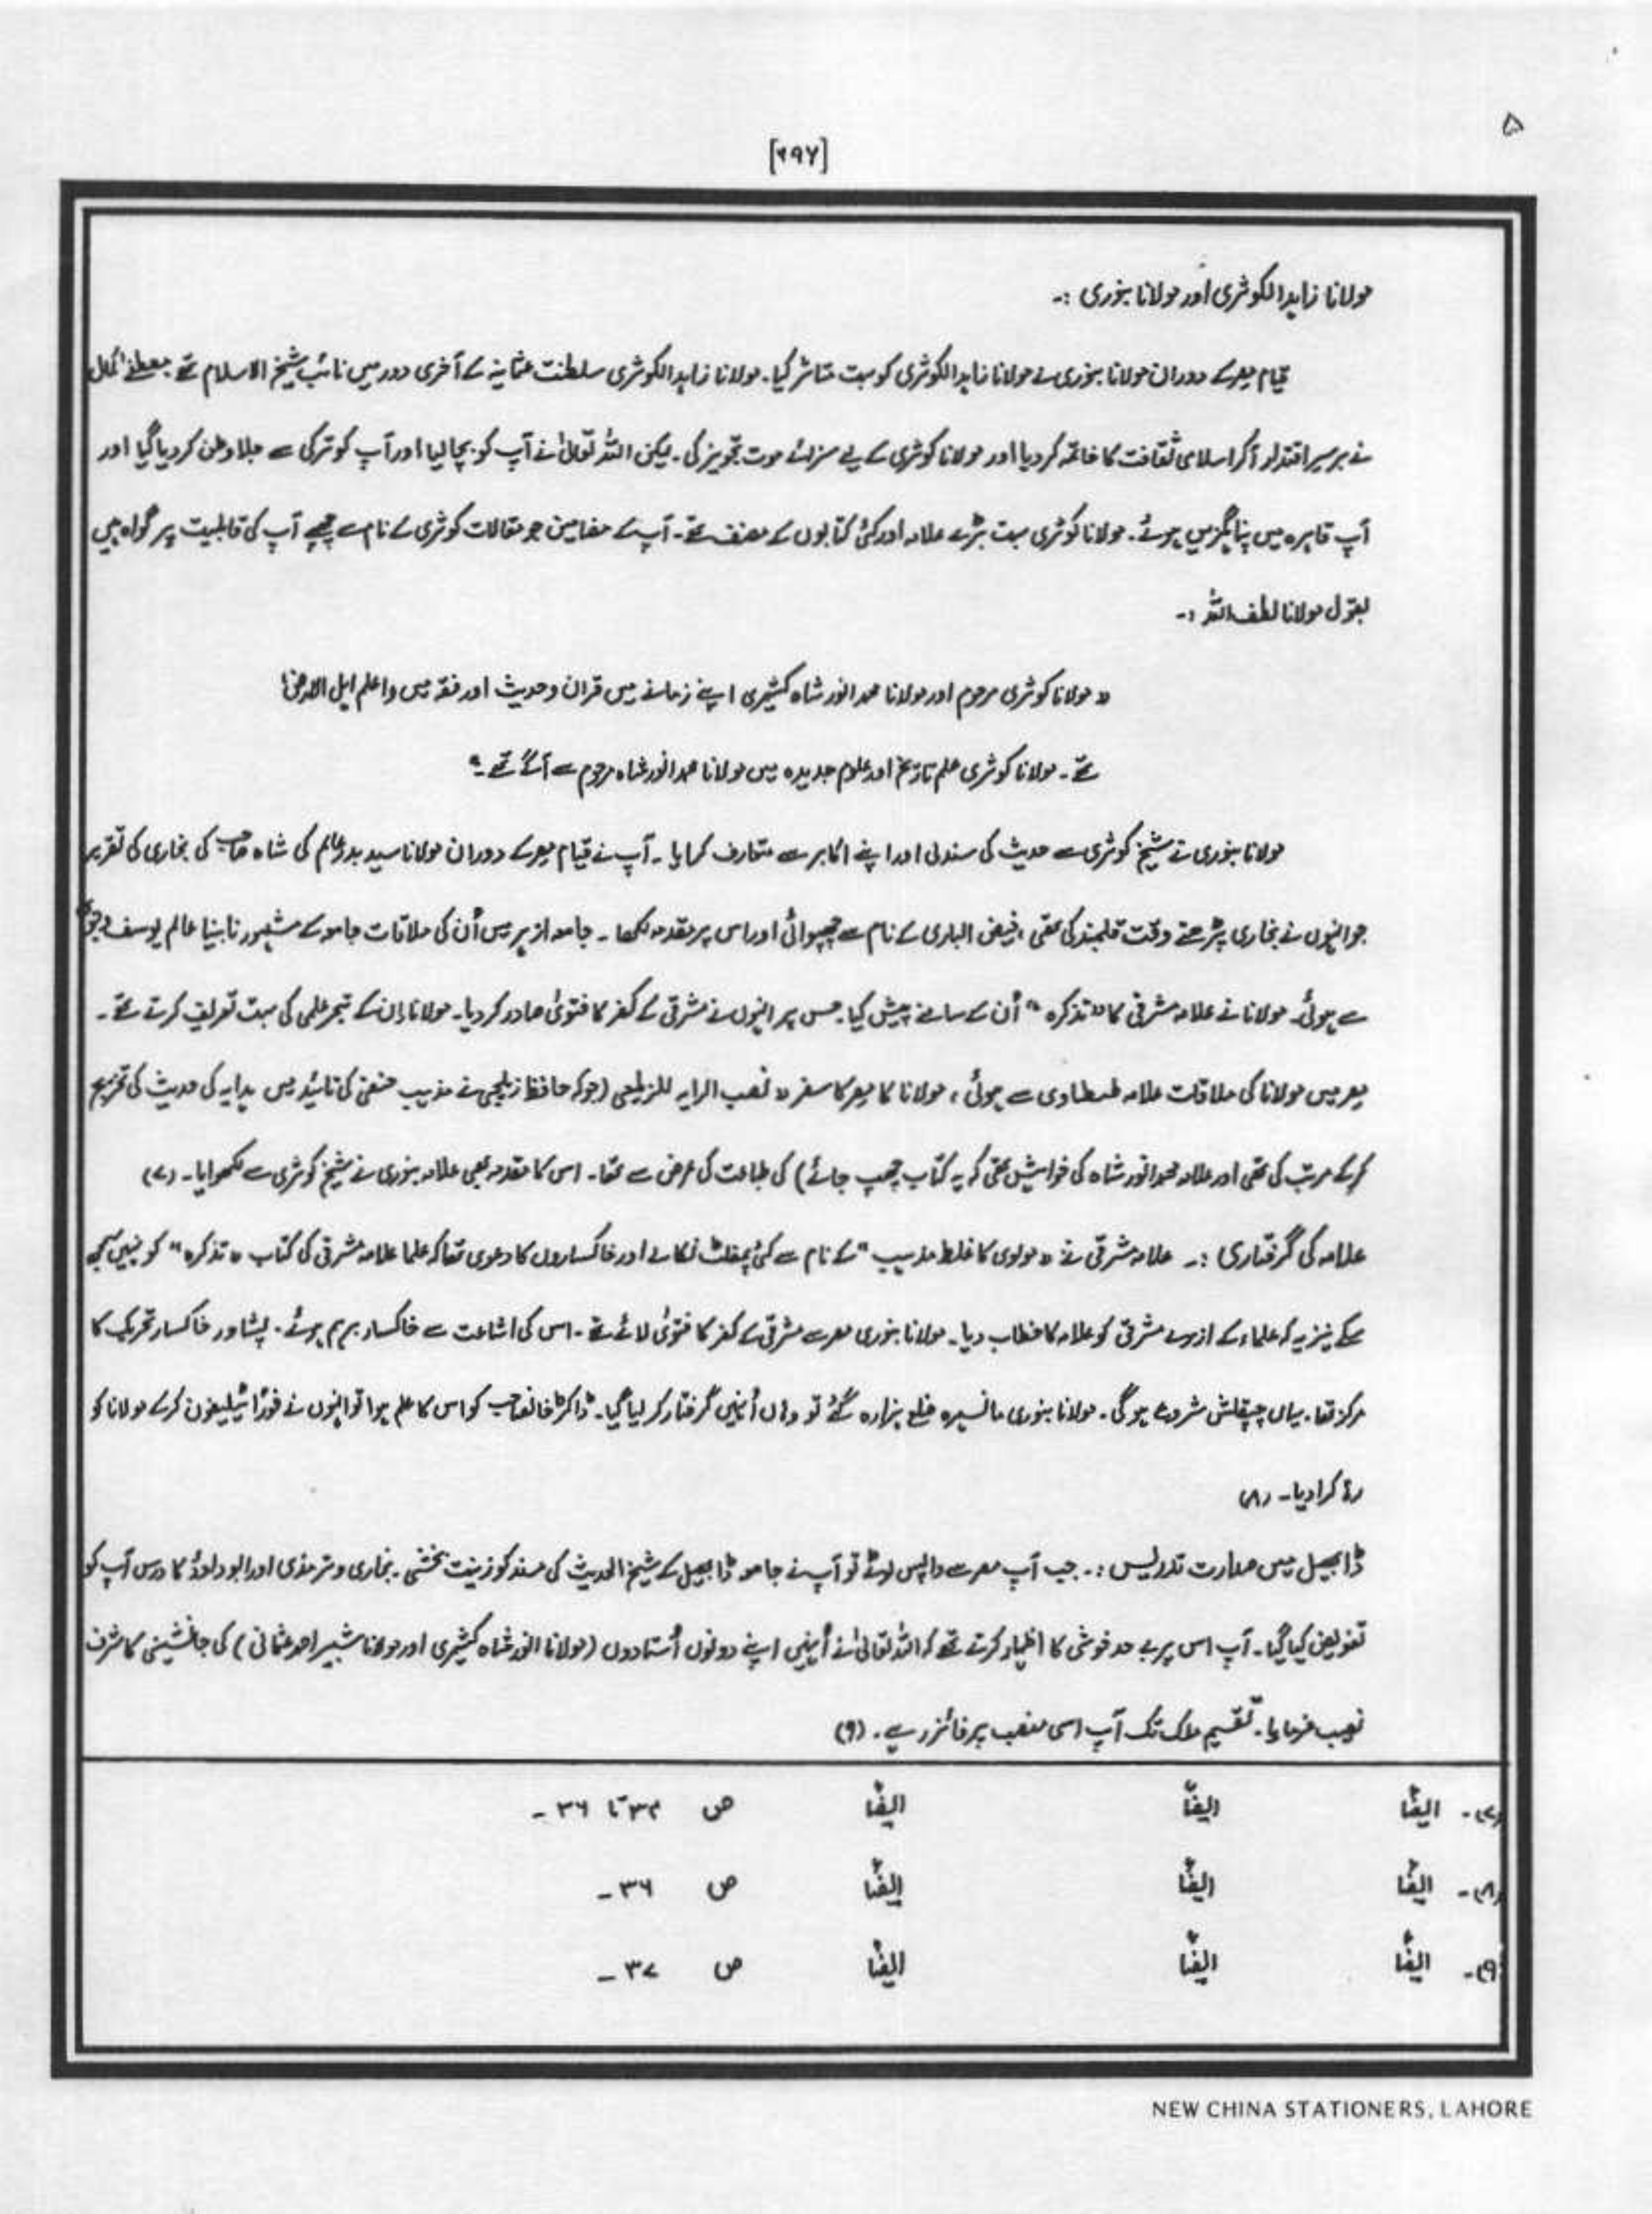 ۵
[۲۹۷]
مولانا زاہد الکوثری اور مولانا بنوری :۔
قیام مصر کے دوران مولانا بنوری نے مولانا زاہد الکوثری کو بہت متاثر کیا۔ مولانا زاہد الکوثری سلطنت عثمانیہ کے آخری دور میں نائب شیخ الاسلام تھے مصطفےٰ کمال
نے برسرِ اقتدار آکر اسلامی ثقافت کا خاتمہ کر دیا اور مولانا کوثری کے لیے سزائے موت تجویز کی۔ لیکن اللہ تعالیٰ نے آپ کو بچا لیا اور آپ کو ترکی سے جلا وطن کر دیا گیا اور
آپ قاہرہ میں پناہ گزیں ہوئے۔ مولانا کوثری بہت بڑے علامہ اور کئی کتابوں کے مصنف تھے۔ آپ کے مضامین جو مقالات کوثری کے نام سے چھپے آپ کی قابلیت پر گواہ ہیں
بقول مولانا لطف اللہ :۔
"مولانا کوثری مرحوم اور مولانا محمد انور شاہ کشمیری اپنے زمانے میں قران و حدیث اور فقہ میں "اعلم اہل الارض"
تھے۔ مولانا کوثری علم تاریخ اور علوم جدیدہ میں مولانا محمد انور شاہ مرحوم سے آگے تھے۔"
مولانا بنوری نے شیخ کوثری سے حدیث کی سند لی اور اپنے اکابر سے متعارف کرایا۔ آپ نے قیام مصر کے دوران مولانا سید بدر عالم کی شاہ صاحب کی بخاری کی تقریر
جو انہوں نے بخاری پڑھتے وقت قلمبند کی تھی، فیض الباری کے نام سے چھپوائی اور اس پر مقدمہ لکھا۔ جامعہ ازہر میں اُن کی ملاقات جامعہ کے مشہور نابینا عالم یوسف
سے ہوئی۔ مولانا نے علامہ مشرقی کا "تذکرہ" اُن کے سامنے پیش کیا۔ جس پر انہوں نے مشرقی کے کفر کا فتویٰ صادر کر دیا۔ مولانا اِن کے تبحر علمی کی بہت تعریف کرتے تھے۔
مصر میں مولانا کی ملاقات علامہ طنطاوی سے ہوئی، مولانا کا مصر کا سفر "نصب الرایہ للزیلعی (جو کہ حافظ زیلعی نے مذہب حنفی کی تائید میں ہدایہ کی حدیث کی تخریج
کرکے مرتب کی تھی اور علامہ محمد انور شاہ کی خواہش تھی کہ یہ کتاب چھپ جائے) کی طباعت کی غرض سے تھا۔ اس کا مقدمہ بھی علامہ بنوری نے شیخ کوثری سے لکھوایا۔ (۷)
علامہ کی گرفتاری :۔ علامہ مشرقی نے "مولوی کا غلط مذہب" کے نام سے کئی پمفلٹ نکالے اور خاکساروں کا دعوی تھا کہ علما علامہ مشرقی کی کتاب "تذکرہ" کو نہیں سمجھ
سکے نیز یہ کہ علماء کے ازہر نے مشرقی کو علامہ کا خطاب دیا۔ مولانا بنوری مصر سے مشرقی کے کفر کا فتویٰ لائے تھے۔ اس کی اشاعت سے خاکسار برہم ہوئے۔ پشاور خاکسار تحریک کا
مرکز تھا۔ یہاں چپقلش شروع ہو گی۔ مولانا بنوری مانسہرہ ضلع ہزارہ گئے تو وہاں اُنہیں گرفتار کر لیا گیا۔ ڈاکٹر خانصاحب کو اس کا علم ہوا تو انہوں نے فوراً ٹیلیفون کرکے مولانا کو
رہا کرا دیا۔ (۸)
ڈابھیل میں صدارت تدریس :۔ جب آپ مصر سے واپس لوٹے تو آپ نے جامعہ ڈابھیل کے شیخ الحدیث کی مسند کو زینت بخشی۔ بخاری و ترمذی اور ابو داؤد کا درس آپ کو
تفویض کیا گیا۔ آپ اس پر بے حد خوشی کا اظہار کرتے تھے کہ اللہ تعالیٰ نے اُنہیں اپنے دونوں اُستادوں (مولانا انور شاہ کشمیری اور مولانا شبیر احمد عثمانی) کی جانشینی کا شرف
نصیب فرمایا۔ تقسیم ملک تک آپ اسی منصب پر فائز رہے۔ (۹)
(۷)۔ ایضاً ایضاً ایضاً ص ۳۴ تا ۳۶۔
(۸)۔ ایضاً ایضاً ایضاً ص ۳۶۔
(۹)۔ ایضاً ایضاً ایضاً ص ۳۷۔
NEW CHINA STATIONERS, LAHORE